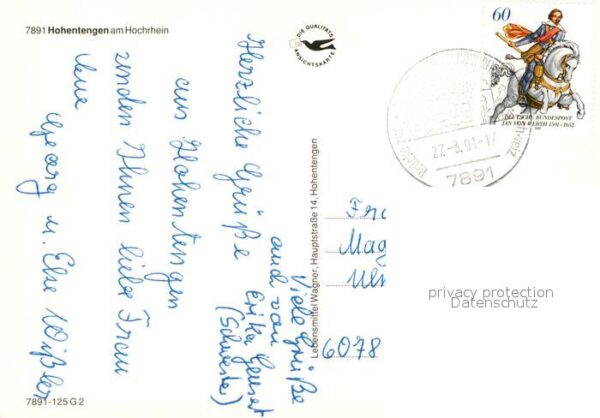 7891 Hohentengen am Hochrhein
DIE QUALITÄTS
ANSICHTSKARTE
60
DEUTSCHE BUNDESPOST
JAN VON WERTH 1591-1652
27.-3.91-17
7891
Herzliche Grüße
aus Hohentengen
senden Ihnen liebe Frau
Georg u. Else Wißler
Viele Grüße
auch von
Erika
(Schwester)
Lebensmittel Wagner, Hauptstraße 14, Hohentengen
Fra
Mag
Ulm
6078
privacy protection
Datenschutz
7891-125 G 2